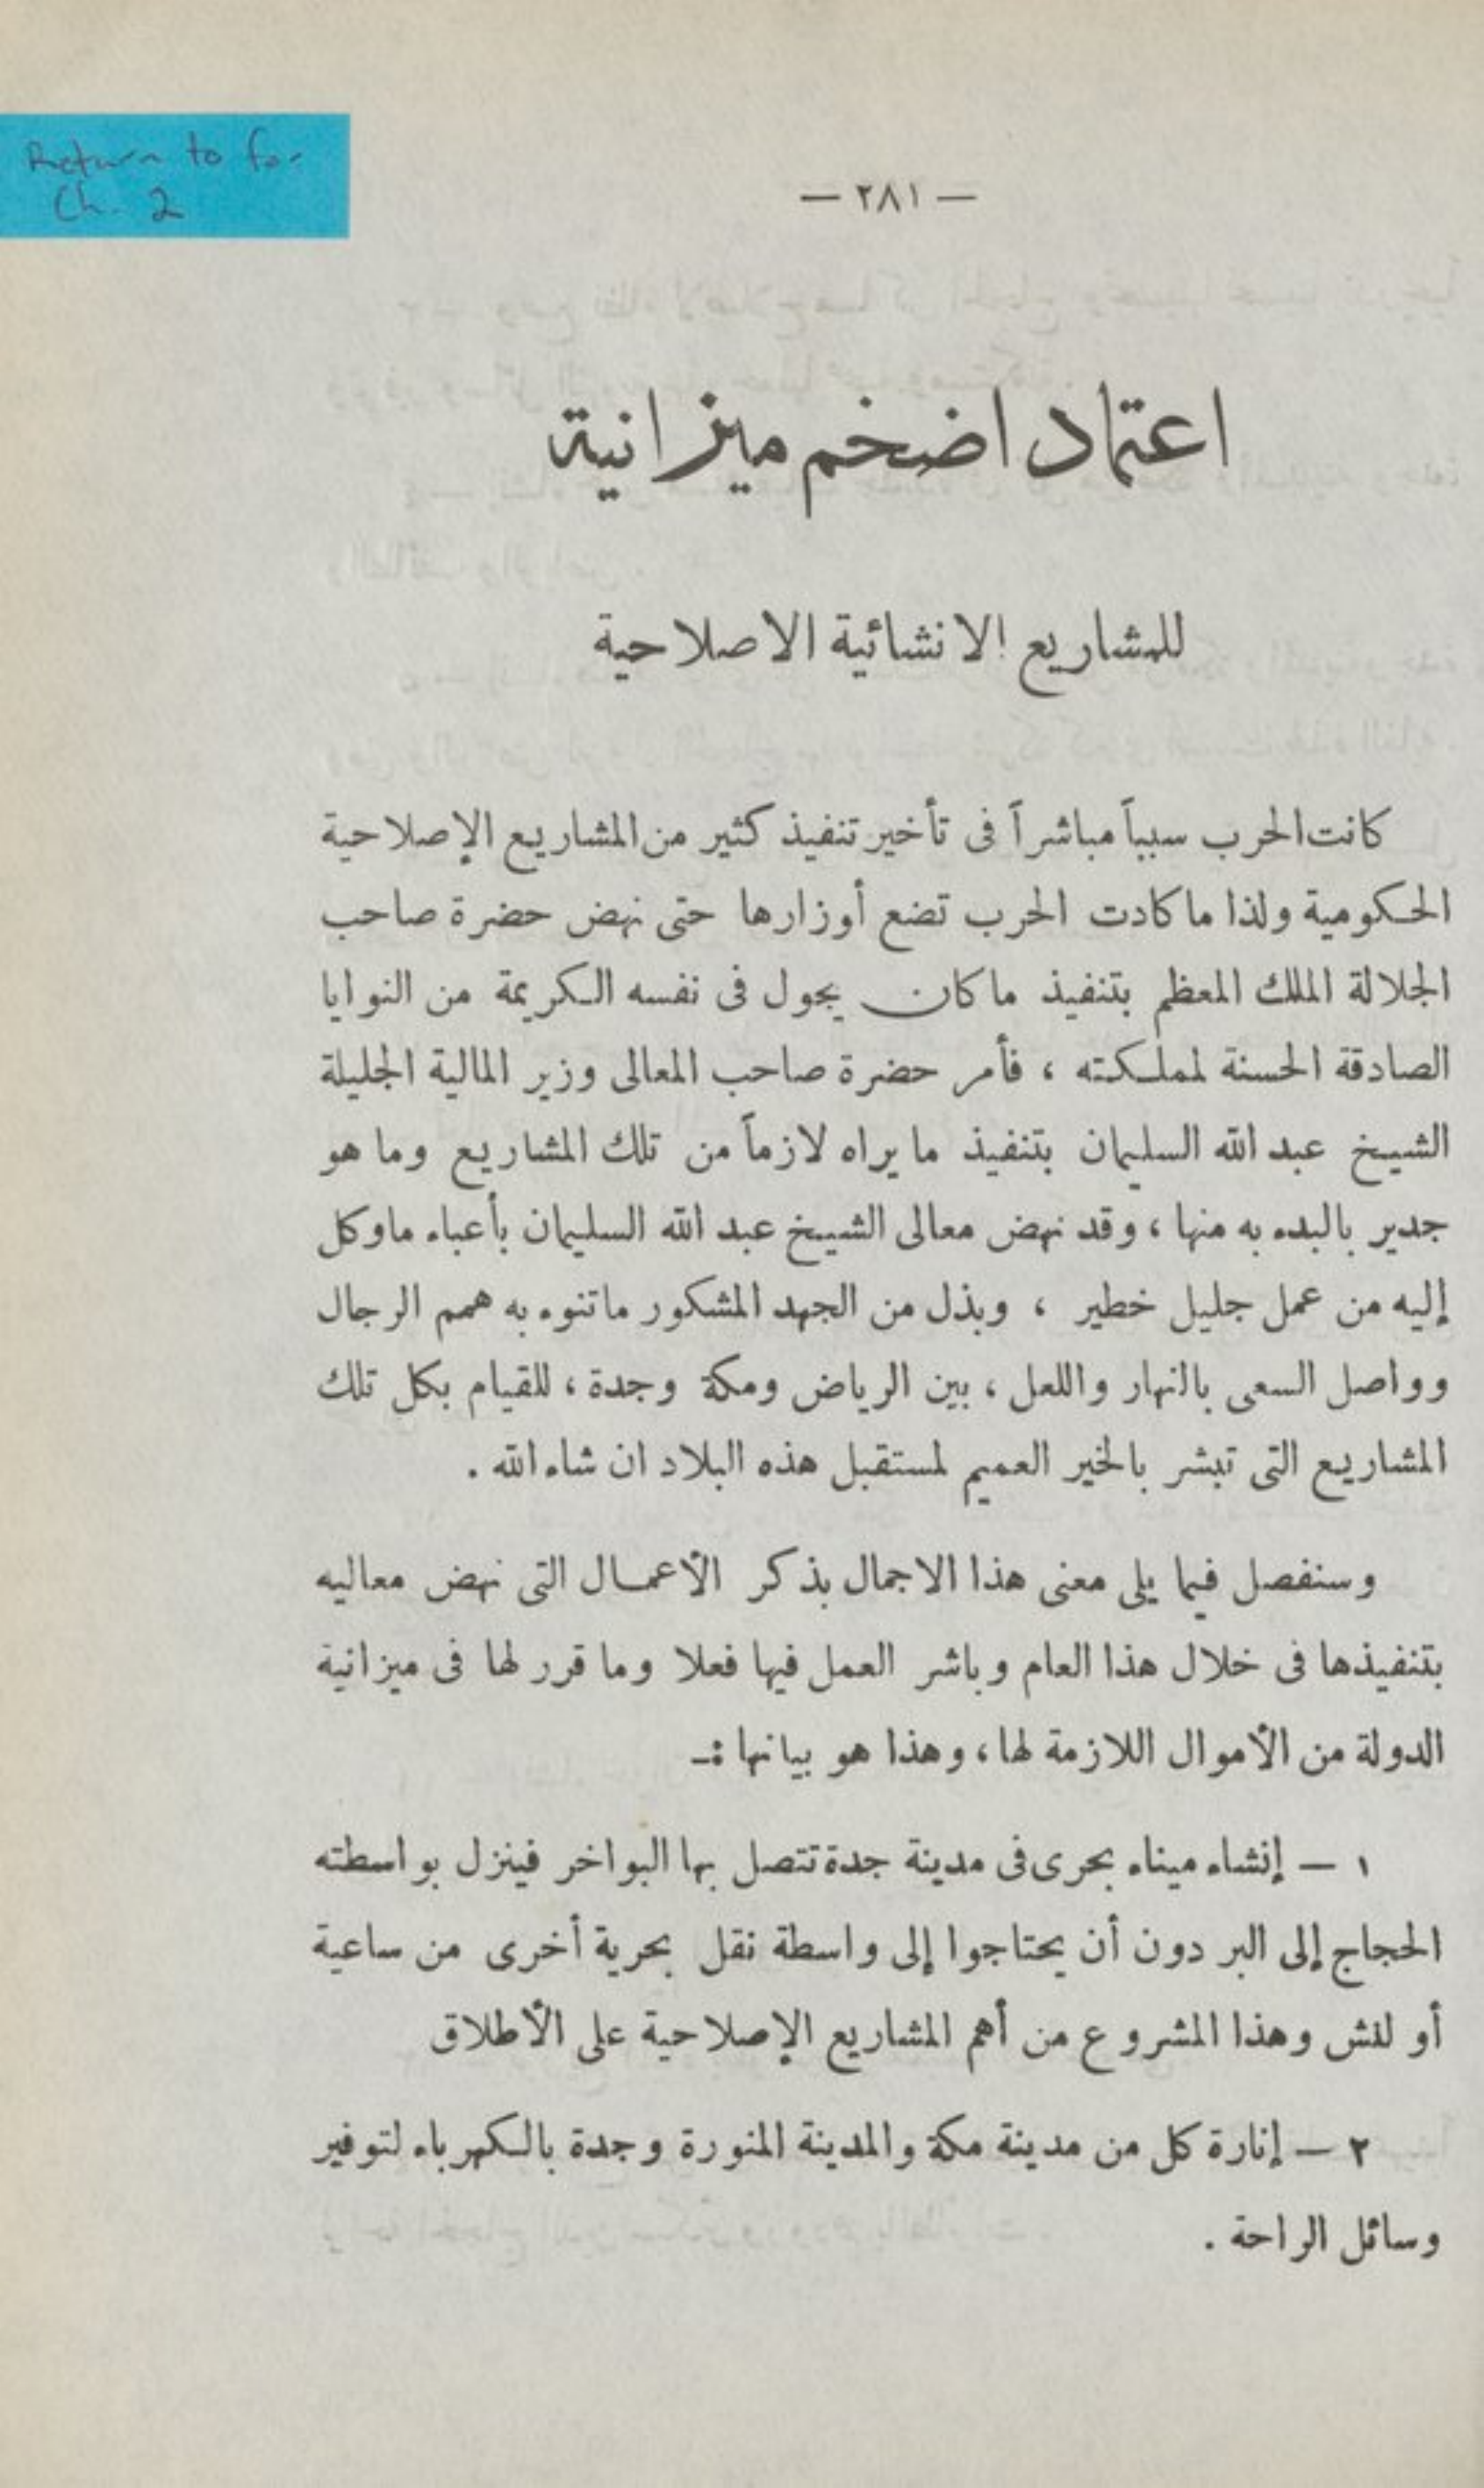 Return to for
Ch. 2
— ٢٨١ —
اعتماد اضخم ميزانية
للمشاريع الانشائية الاصلاحية
كانت الحرب سبباً مباشراً فى تأخير تنفيذ كثير من المشاريع الإصلاحية
الحكومية ولذا ما كادت الحرب تضع أوزارها حتى نهض حضرة صاحب
الجلالة الملك المعظم بتنفيذ ما كان يجول فى نفسه الكريمة من النوايا
الصادقة الحسنة لمملكته ، فأمر حضرة صاحب المعالى وزير المالية الجليلة
الشيخ عبد الله السليمان بتنفيذ ما يراه لازماً من تلك المشاريع وما هو
جدير بالبدء به منها ، وقد نهض معالى الشيخ عبد الله السليمان بأعباء ماوكل
إليه من عمل جليل خطير ، وبذل من الجهد المشكور ماتنوء به همم الرجال
وواصل السعى بالنهار واللعل ، بين الرياض ومكة وجدة ، للقيام بكل تلك
المشاريع التى تبشر بالخير العميم لمستقبل هذه البلاد ان شاء الله .
وسنفصل فيما يلى معنى هذا الاجمال بذكر الأعمال التى نهض معاليه
بتنفيذها فى خلال هذا العام وباشر العمل فيها فعلا وما قرر لها فى ميزانية
الدولة من الأموال اللازمة لها ، وهذا هو بيانها :ـ
١ — إنشاء ميناء بحرى فى مدينة جدة تتصل بها البواخر فينزل بواسطته
الحجاج إلى البر دون أن يحتاجوا إلى واسطة نقل بحرية أخرى من ساعية
أو لنش وهذا المشروع من أهم المشاريع الإصلاحية على الأطلاق
٢ — إنارة كل من مدينة مكة والمدينة المنورة وجدة بالكهرباء لتوفير
وسائل الراحة .